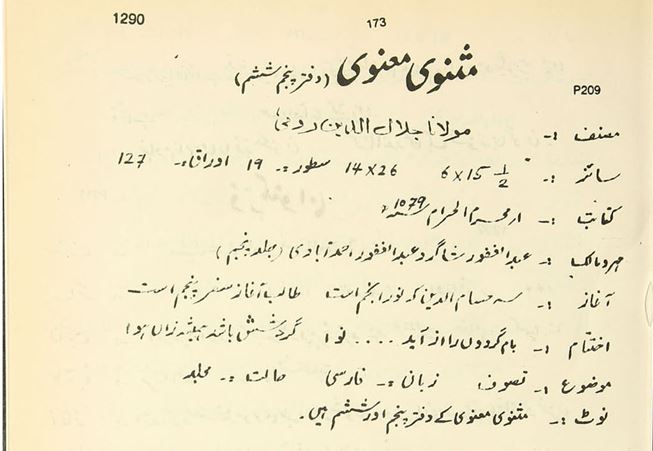 1290
173
مثنوی معنوی (دفتر پنجم ششم)
P209
مصنف :۔ مولانا جلال الدین رومیؒ
سائز :۔ 6x15 ½ 14x26 سطور :۔ 19 اوراق :۔ 127
کتابت :۔ ار محرم الحرام 1079
مہر و مالک :۔ عبدالغفور شاگرد عبدالغفور احمدآبادی (جلد پنجم)
آغاز :۔ شہ حسام الدین کہ نور انجم است طالب آغاز سفر پنجم است
اختتام :۔ بام گردوں را از آید .... نوا گردشش باشد ہمیشہ زاں ہوا
موضوع :۔ تصوف زبان :۔ فارسی حالت :۔ مجلد
نوٹ :۔ مثنوی معنوی کے دفتر پنجم اور ششم ہیں۔